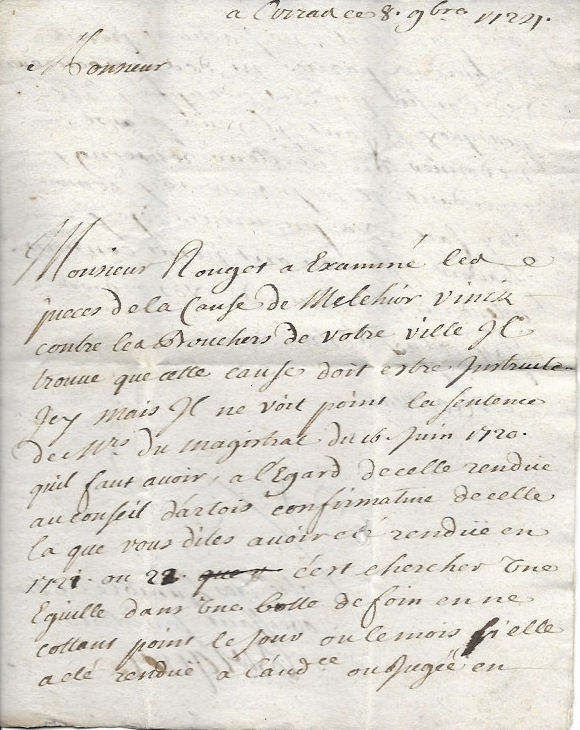 a Arras ce 8. 9bre 1724.
Monsieur
Monsieur Rouget a Examiné les
pieces de la Cause de Melchior vinck
contre les Bouchers de votre ville Jl
trouve que cette cause doit estre Jnstruite
Jcy mais Jl ne voit point la sentence
de Mrs. du magistrat du 16. Juin 1720.
quil faut avoir, a l'Egard de celle rendüe
au conseil d'artois confirmative de celle
la que vous dites avoir eté rendüe en
1721. ou 22. c'est chercher Une
Eguille dans Une botte de foin en ne
cottant point le Jour ou le mois si elle
a eté rendüe a l'audce ou Jugéé en